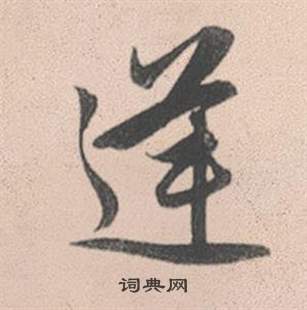 逢
词典网